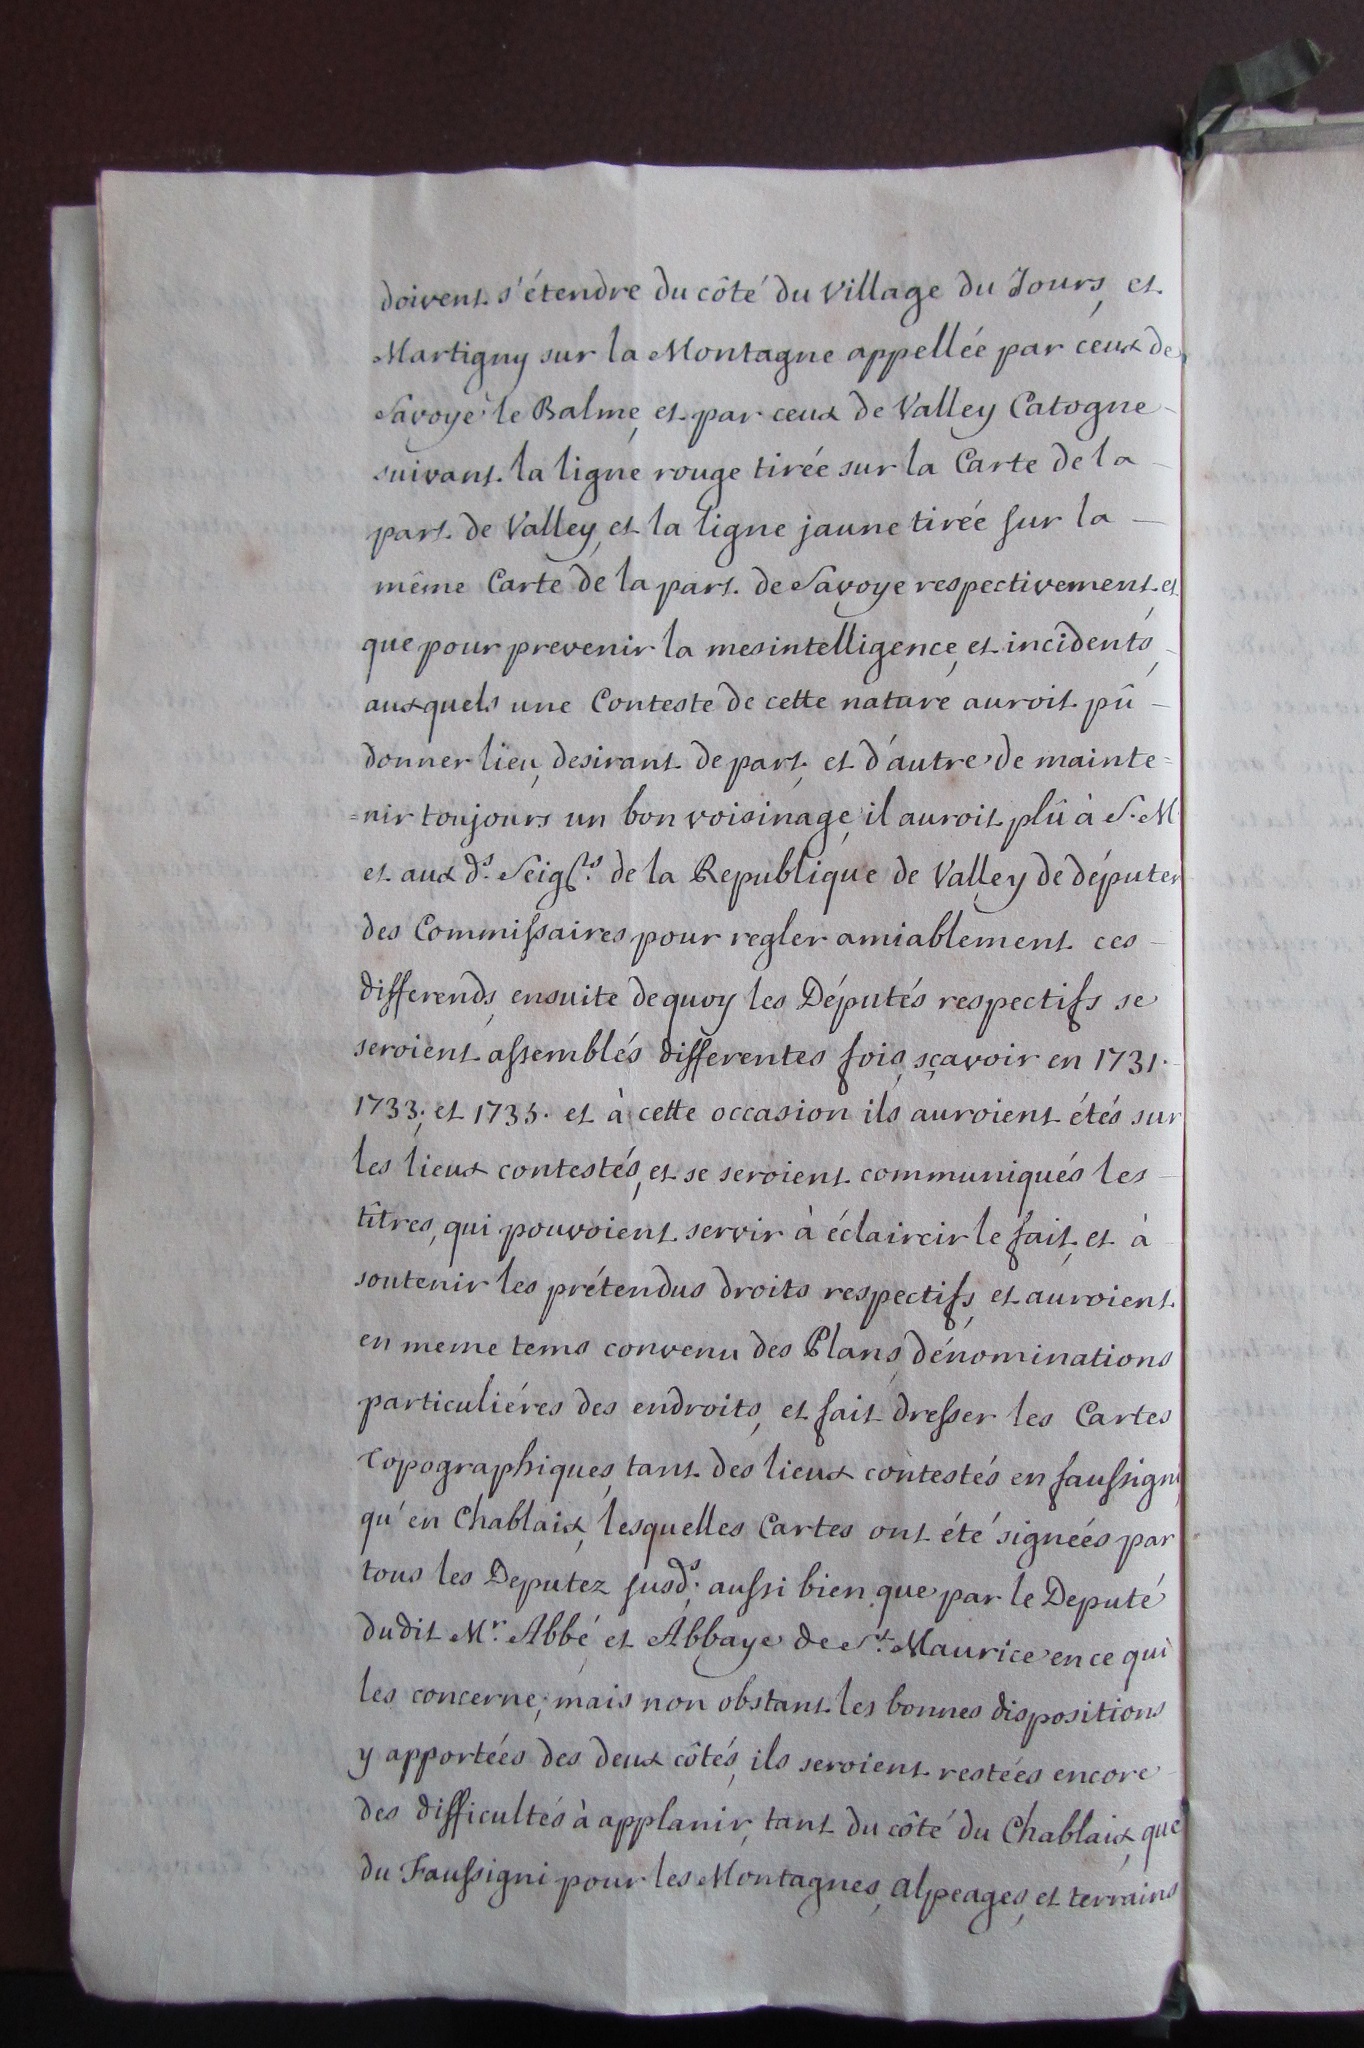 doivent s'étendre du côté du Village du Tours, et
Martigny sur la Montagne appellée par ceux de
Savoye le Balme, et par ceux de Valley Catogne
suivant la ligne rouge tirée sur la Carte de la
part de Valley, et la ligne jaune tirée sur la
même Carte de la part de Savoye respectivement, et
que pour prevenir la mesintelligence, et incidents,
auxquels une Conteste de cette nature auroit pû
donner lieu, desirant de part, et d'autre de mainte=
=nir toujours un bon voisinage, il auroit plû à S. M.
et aux ds. Seigrs. de la Republique de Valley de députer
des Commissaires pour regler amiablement ces
differends, ensuite dequoy les Députés respectifs se
seroient assemblés differentes fois, sçavoir en 1731.
1733. et 1735. et à cette occasion ils auroient étés sur
les lieux contestés, et se seroient communiqués les
tîtres, qui pouvoient servir à éclaircir le fait, et à
soutenir les prétendus droits respectifs, et auroient
en meme tems convenu des Plans, dénominations
particuliéres des endroits, et fait dresser les Cartes
Topographiques, tant des lieux contestés en faussigni,
qu'en Chablaix, lesquelles Cartes ont été signeés par
tous les Deputez susds. aussi bien que par le Deputé
dudit Mr. Abbé, et Abbaye de St. Maurice en ce qui
les concerne; mais non obstant les bonnes dispositions
y apportées des deux côtés, ils seroient restées encore
des difficultés à applanir, tant du côté du Chablaix, que
du Faussigni pour les Montagnes, alpeages, et terrains